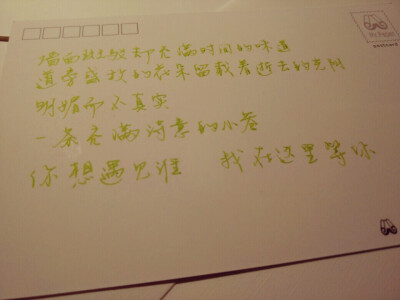 墙面斑驳却充满时间的味道
盛放的花朵留载着逝去的光阴
明媚而不真实
一条充满诗意的小巷
你想遇见谁 我在这里等你
postcard